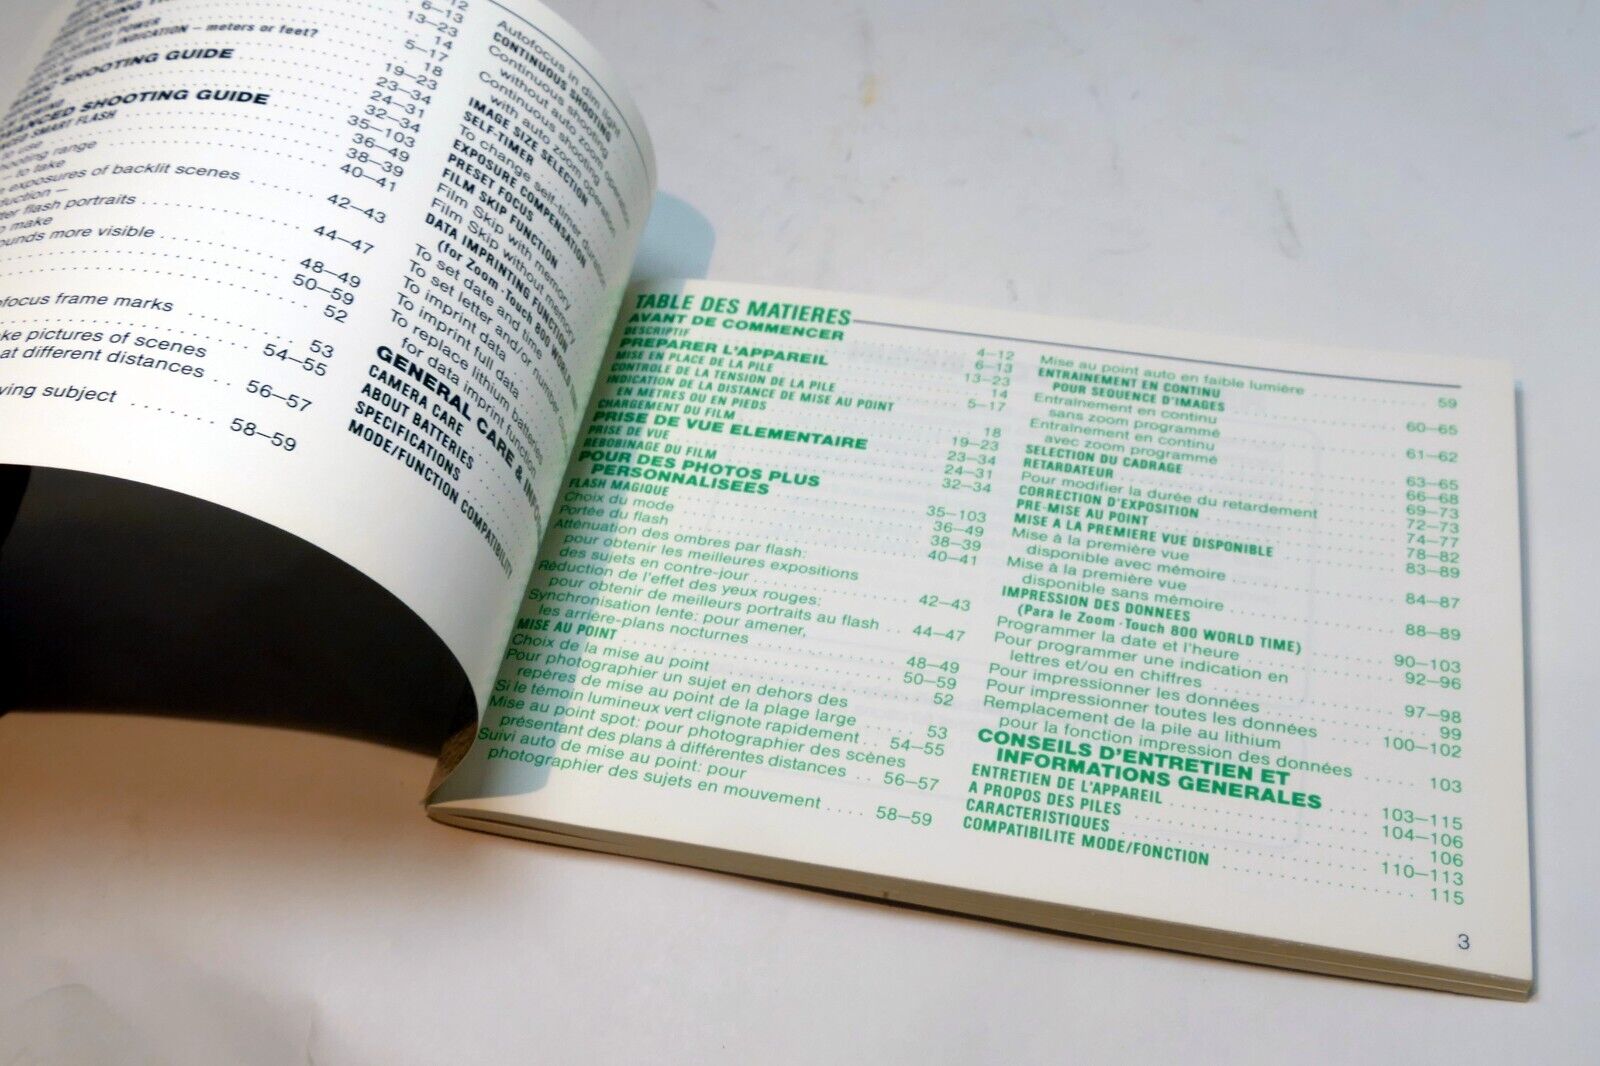 12
6–13
13–23
DISTANCE INDICATION – meters or feet?
14
5–17
18
SHOOTING GUIDE
19–23
23–34
24–31
SHOOTING GUIDE
32–34
SMART FLASH
35–103
to use
36–49
shooting range
38–39
– to take
40–41
exposures of backlit scenes
42–43
flash portraits
44–47
make
more visible
48–49
50–59
52
frame marks
53
pictures of scenes
54–55
at different distances
56–57
subject
58–59
Autofocus in dim light
CONTINUOUS SHOOTING
Continuous shooting
without auto zoom operation
Continuous shooting
with auto zoom operation
IMAGE SIZE SELECTION
SELF-TIMER
To change self-timer duration
EXPOSURE COMPENSATION
PRESET FOCUS
FILM SKIP FUNCTION
Film Skip with memory
Film Skip without memory
DATA IMPRINTING FUNCTION
(for Zoom·Touch 800 WORLD
To set date and time
To set letter and/or number
To imprint data
To imprint full data
To replace lithium batteries
for data imprint function
GENERAL CARE &
CAMERA CARE
ABOUT BATTERIES
SPECIFICATIONS
MODE/FUNCTION COMPATIBILITY
TABLE DES MATIERES
AVANT DE COMMENCER 4–12
DESCRIPTIF 6–13
PREPARER L'APPAREIL 13–23
MISE EN PLACE DE LA PILE 14
CONTROLE DE LA TENSION DE LA PILE 5–17
INDICATION DE LA DISTANCE DE MISE AU POINT
EN METRES OU EN PIEDS 18
CHARGEMENT DU FILM 19–23
PRISE DE VUE ELEMENTAIRE 23–34
PRISE DE VUE 24–31
REBOBINAGE DU FILM 32–34
POUR DES PHOTOS PLUS
PERSONNALISEES 35–103
FLASH MAGIQUE 36–49
Choix du mode 38–39
Portée du flash 40–41
Atténuation des ombres par flash:
pour obtenir les meilleures expositions
des sujets en contre-jour 42–43
Réduction de l'effet des yeux rouges:
pour obtenir de meilleurs portraits au flash 44–47
Synchronisation lente: pour amener,
les arrière-plans nocturnes 48–49
MISE AU POINT 50–59
Choix de la mise au point 52
Pour photographier un sujet en dehors des
repères de mise au point de la plage large 53
Si le témoin lumineux vert clignote rapidement 54–55
Mise au point spot: pour photographier des scènes
présentant des plans à différentes distances 56–57
Suivi auto de mise au point: pour
photographier des sujets en mouvement 58–59
Mise au point auto en faible lumière 59
ENTRAINEMENT EN CONTINU
POUR SEQUENCE D'IMAGES 60–65
Entraînement en continu
sans zoom programmé 61–62
Entraînement en continu
avec zoom programmé 63–65
SELECTION DU CADRAGE 66–68
RETARDATEUR 69–73
Pour modifier la durée du retardement 72–73
CORRECTION D'EXPOSITION 74–77
PRE-MISE AU POINT 78–82
MISE A LA PREMIERE VUE DISPONIBLE 83–89
Mise à la première vue
disponible avec mémoire 84–87
Mise à la première vue
disponible sans mémoire 88–89
IMPRESSION DES DONNEES
(Para le Zoom·Touch 800 WORLD TIME) 90–103
Programmer la date et l'heure 92–96
Pour programmer une indication en
lettres et/ou en chiffres 97–98
Pour impressionner les données 99
Pour impressionner toutes les données 100–102
Remplacement de la pile au lithium
pour la fonction impression des données 103
CONSEILS D'ENTRETIEN ET
INFORMATIONS GENERALES 103–115
ENTRETIEN DE L'APPAREIL 104–106
A PROPOS DES PILES 106
CARACTERISTIQUES 110–113
COMPATIBILITE MODE/FONCTION 115
3